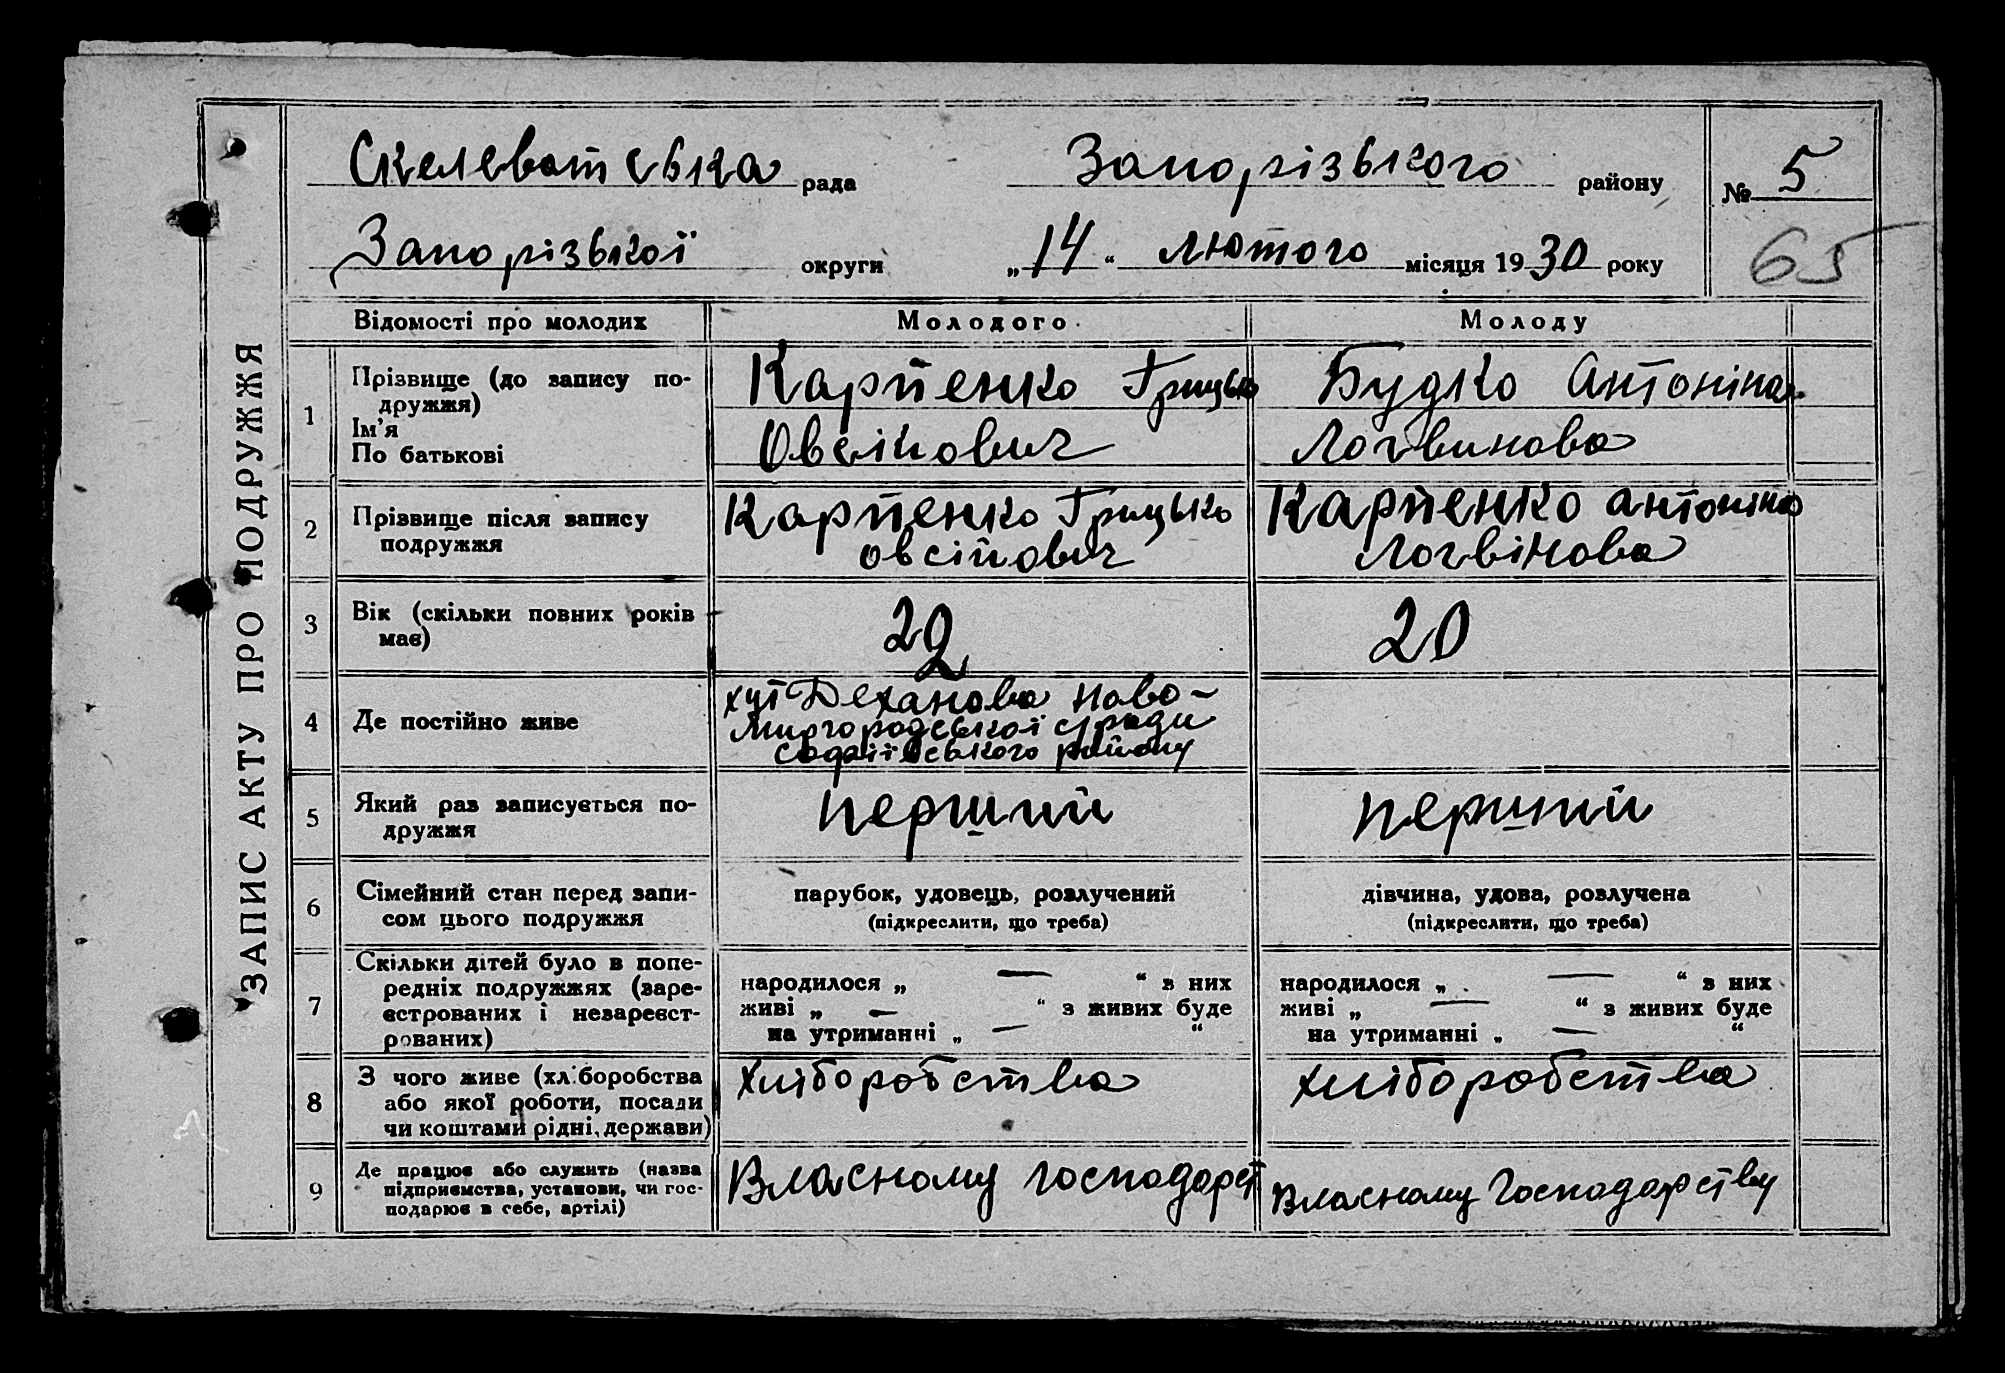 ЗАПИС АКТУ ПРО ПОДРУЖЖЯ
Скелеватська рада Запорізького району № 5
Запорізької округи „14“ лютого місяця 1930 року 65
Відомості про молодих Молодого Молоду
1 Прізвище (до запису по-
дружжя)
Ім'я
По батькові
Карпенко Грицько
Овсійович
Будко Антоніна
Логвинова
2 Прізвище після запису
подружжя
Карпенко Грицько
Овсійович
Карпенко Антоніна
Логвінова
3 Вік (скільки повних років
має)
29
20
4 Де постійно живе
хут Деханова Ново-
Миргородської с/ради
Софіївського району
5 Який раз записується по-
дружжя
перший
перший
6 Сімейний стан перед запи-
сом цього подружжя
парубок, удовець, розлучений
(підкреслити, що треба)
дівчина, удова, розлучена
(підкреслити, що треба)
7 Скільки дітей було в попе-
редніх подружжях (заре-
єстрованих і незареєст-
рованих)
народилося „ — “ з них
живі „ — “ з живих буде
на утриманні „ — “
народилося „ — “ з них
живі „ — “ з живих буде
на утриманні „ — “
8 З чого живе (хліборобства
або якої роботи, посади
чи коштами рідні, держави)
Хліборобства
хліборобства
9 Де працює або служить (назва
підприємства, установи, чи гос-
подарює в себе, артілі)
Власному господарст
Власному господарству